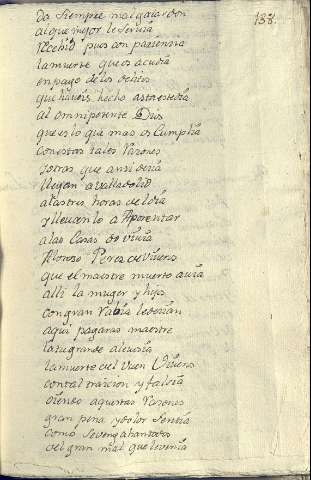 138.
Da siempre mal galardon
al que mejor le servia
Recibid pues con paziensia
la muerte que os acudia
en pago de los delitos
que haveis hecho asta este dia
al omnipotente Dios
que es lo que mas os Cumplia
con estas tales Razones
y otras que ansi decia
llegan a Valladolid
a las tres horas del dia
y llevanlo a Aposentar
a las Casas do vivia
Alonso Perez de Vivero
que el maestre muerto avia
alli la muger y hijos
con gran rabia le decian
aqui pagaras maestre
la tu grande alevosia
la muerte del buen Vivero
con tal traicion y falsia
oiendo aquestas Razones
gran pena y dolor Sentia
como
del gran mal que le venia